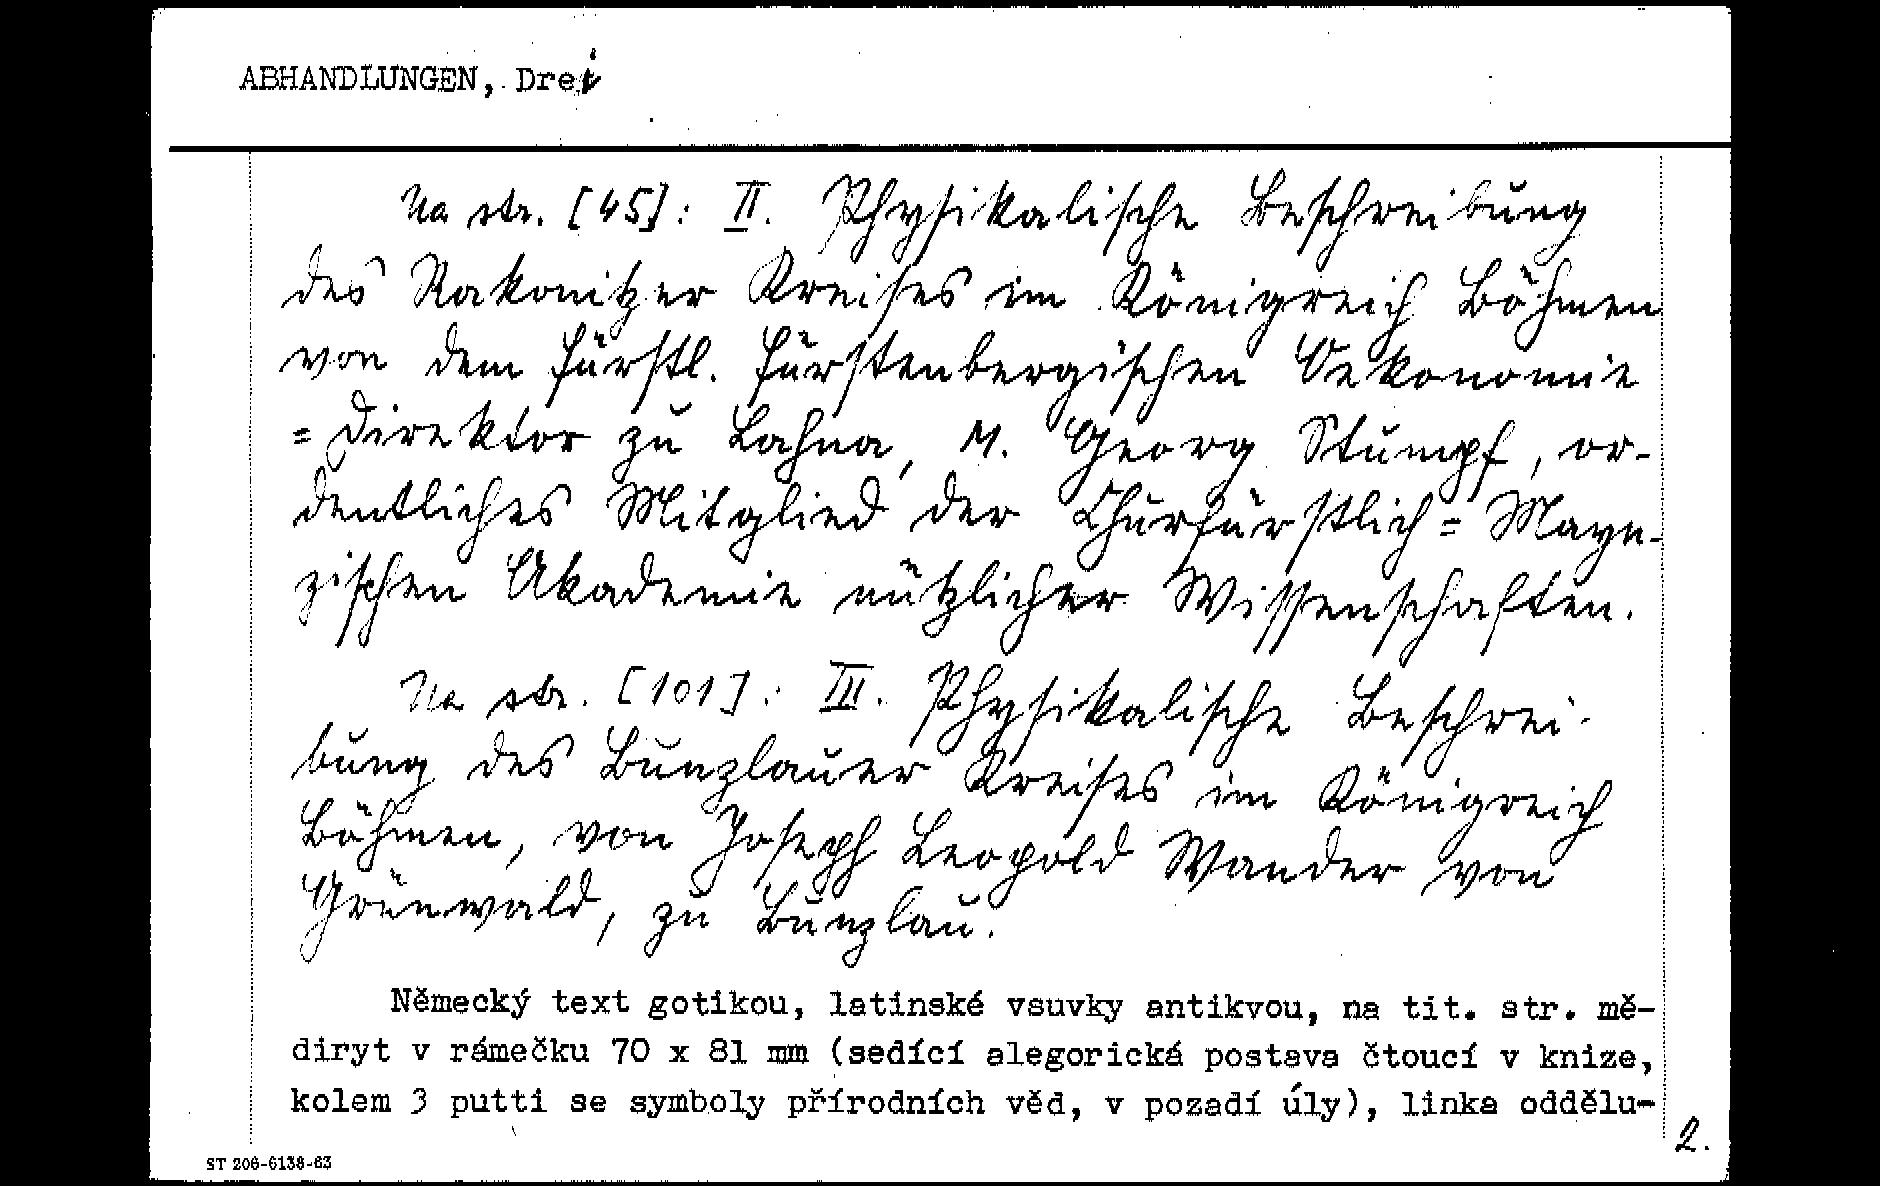 ABHANDLUNGEN, Drei
Na str. [45]: II. Physikalische Beschreibung
des Rakonitzer Kreises im Königreich Böhmen
von dem fürstl. fürstenbergischen Oekonomie
=direktor zu Lahna, M. Georg Stumpf, or-
dentliches Mitglied der Churfürstlich=Mayn-
zischen Akademie nützlicher Wissenschaften.
Na str. [101]: III. Physikalische Beschrei-
bung des Bunzlauer Kreises im Königreich
Böhmen, von Joseph Leopold Wander von
Grünwald, zu Bunzlau.
Německý text gotikou, latinské vsuvky antikvou, na tit. str. mě-
diryt v rámečku 70 x 81 mm (sedící alegorická postava čtoucí v knize,
kolem 3 putti se symboly přírodních věd, v pozadí úly), linka oddělu-
2.
ST 206-6138-63